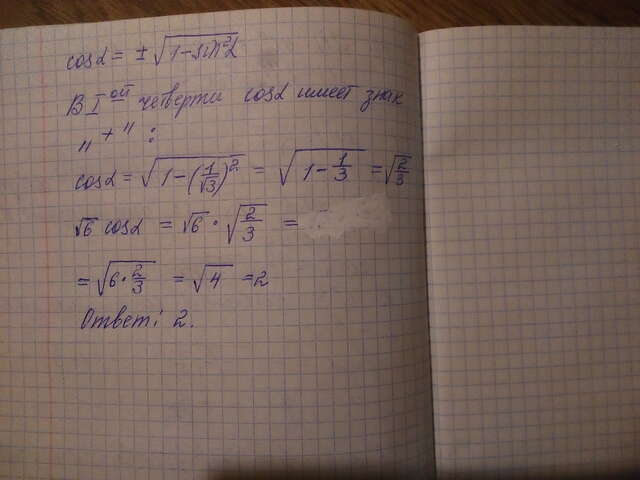 cosα = ±√(1-sin²α)
В I ой четверти cosα имеет знак
"+" :
cosα = √(1-(1/√3)²) = √(1-1/3) = √(2/3)
√6 cosα = √6 · √(2/3) =
= √(6·2/3) = √4 = 2
Ответ: 2.